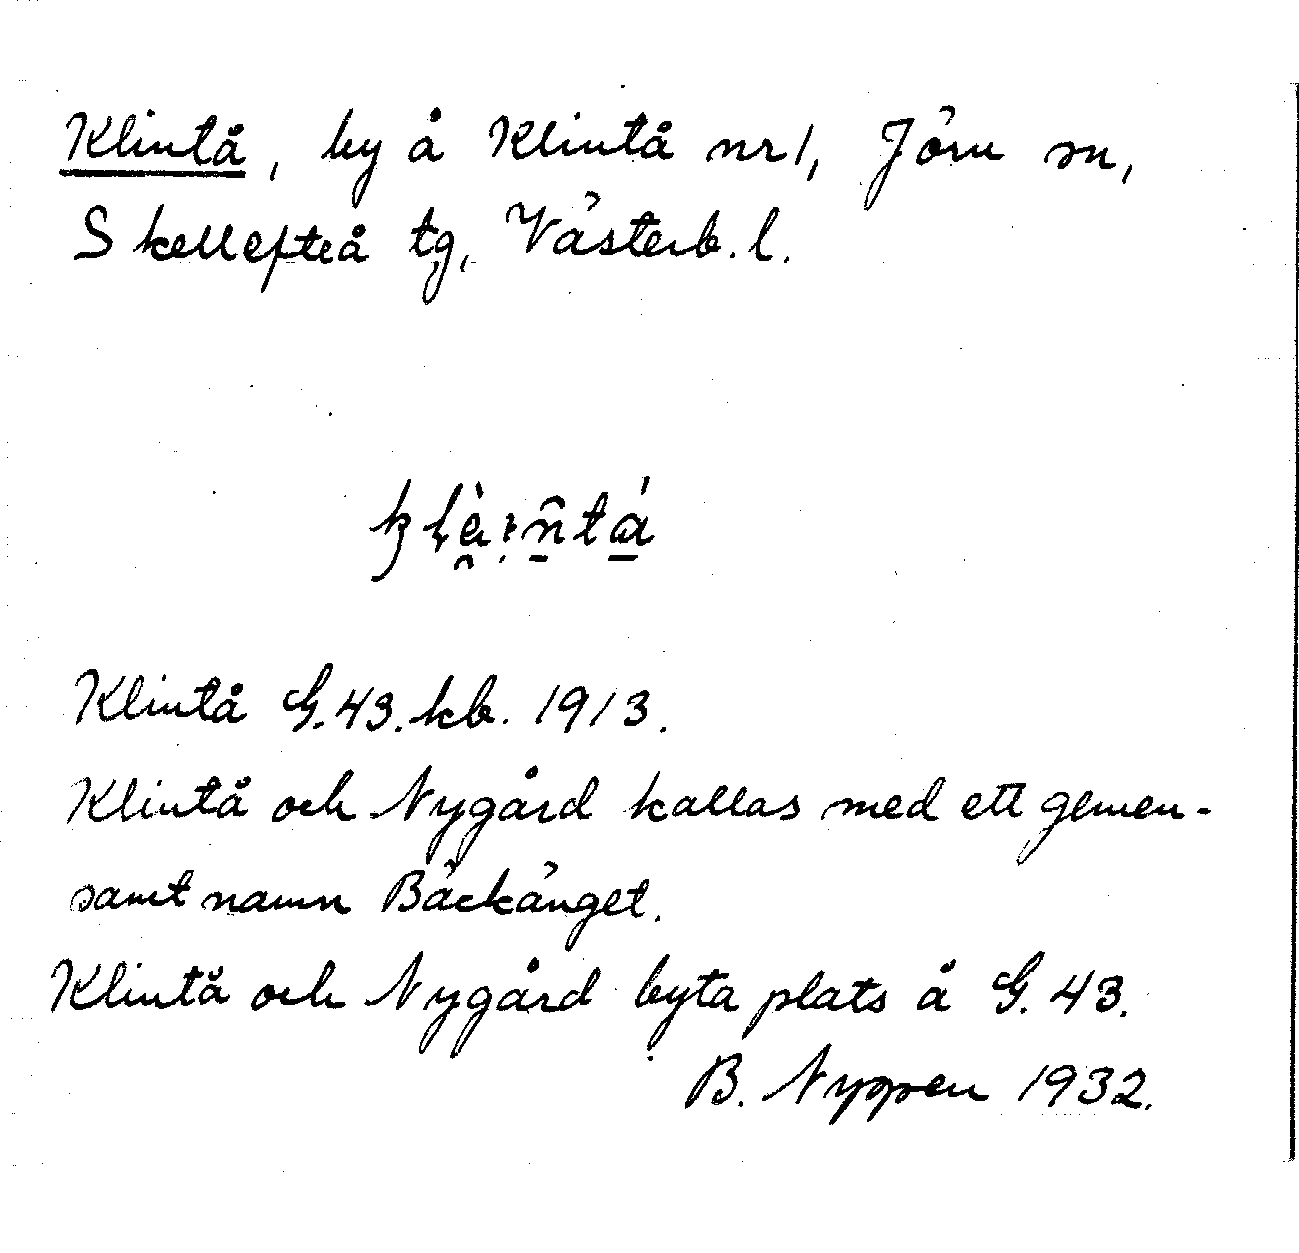 Klintå, by å Klintå nr 1, Jörn sn,
Skellefteå tg, Västerb. l.
Klintå G. 43. kb. 1913.
Klintå och Nygård kallas med ett gemen-
samt namn Bäckänget.
Klintå och Nygård byta plats å G. 43.
B. Nyppen 1932.